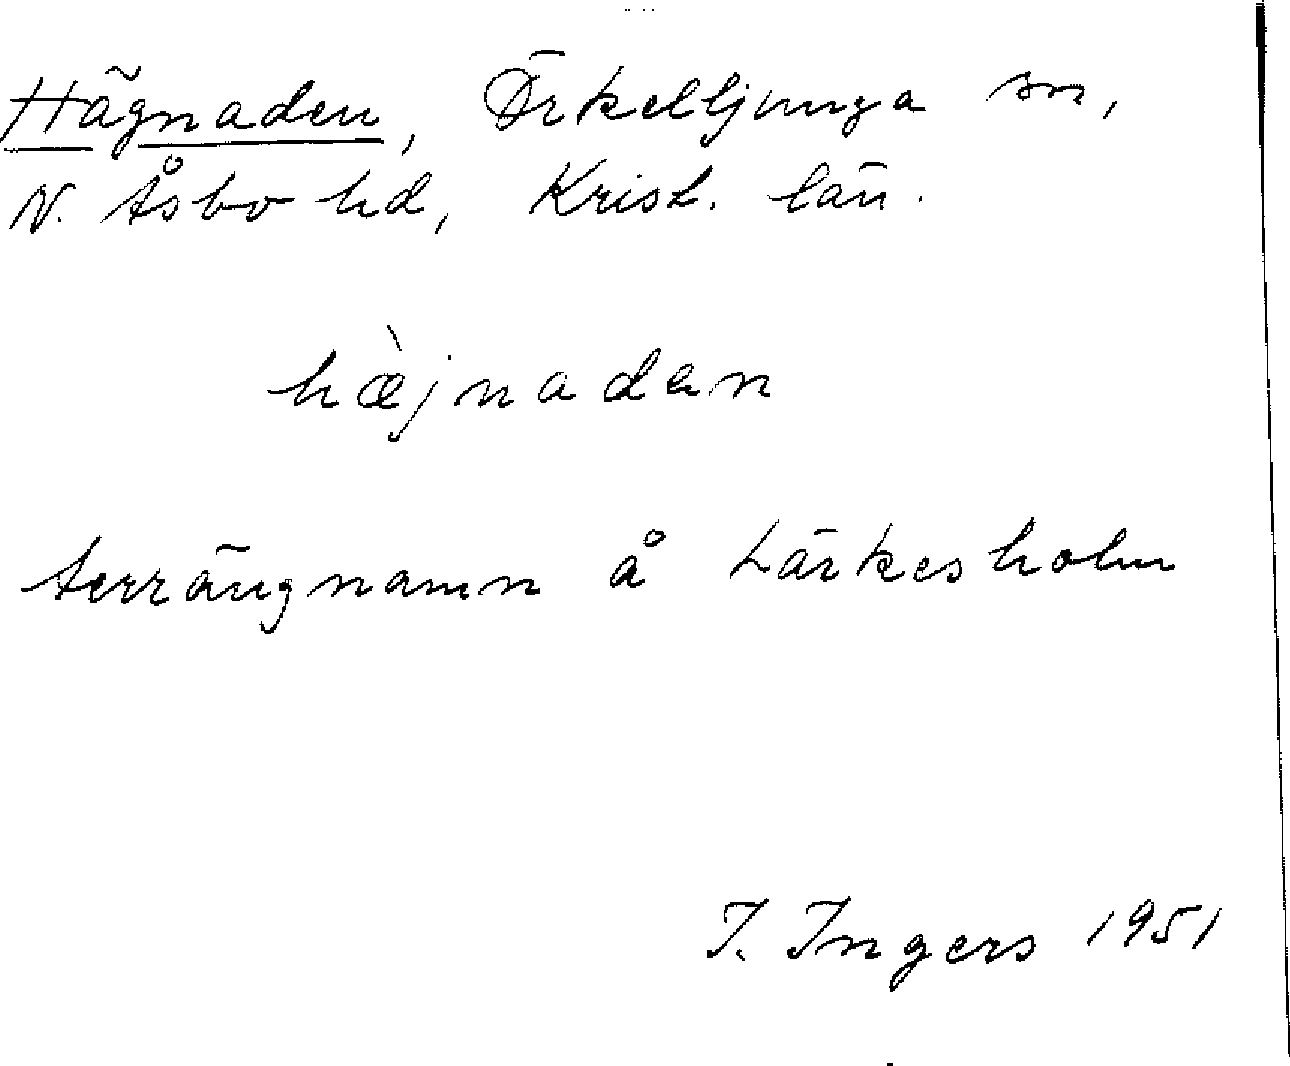 Hägnaden, Örkelljunga sn,
N. Åsbo hd, Krist. län.
hæ̀jnadan
terrängnamn å Lärkesholm
I. Ingers 1951